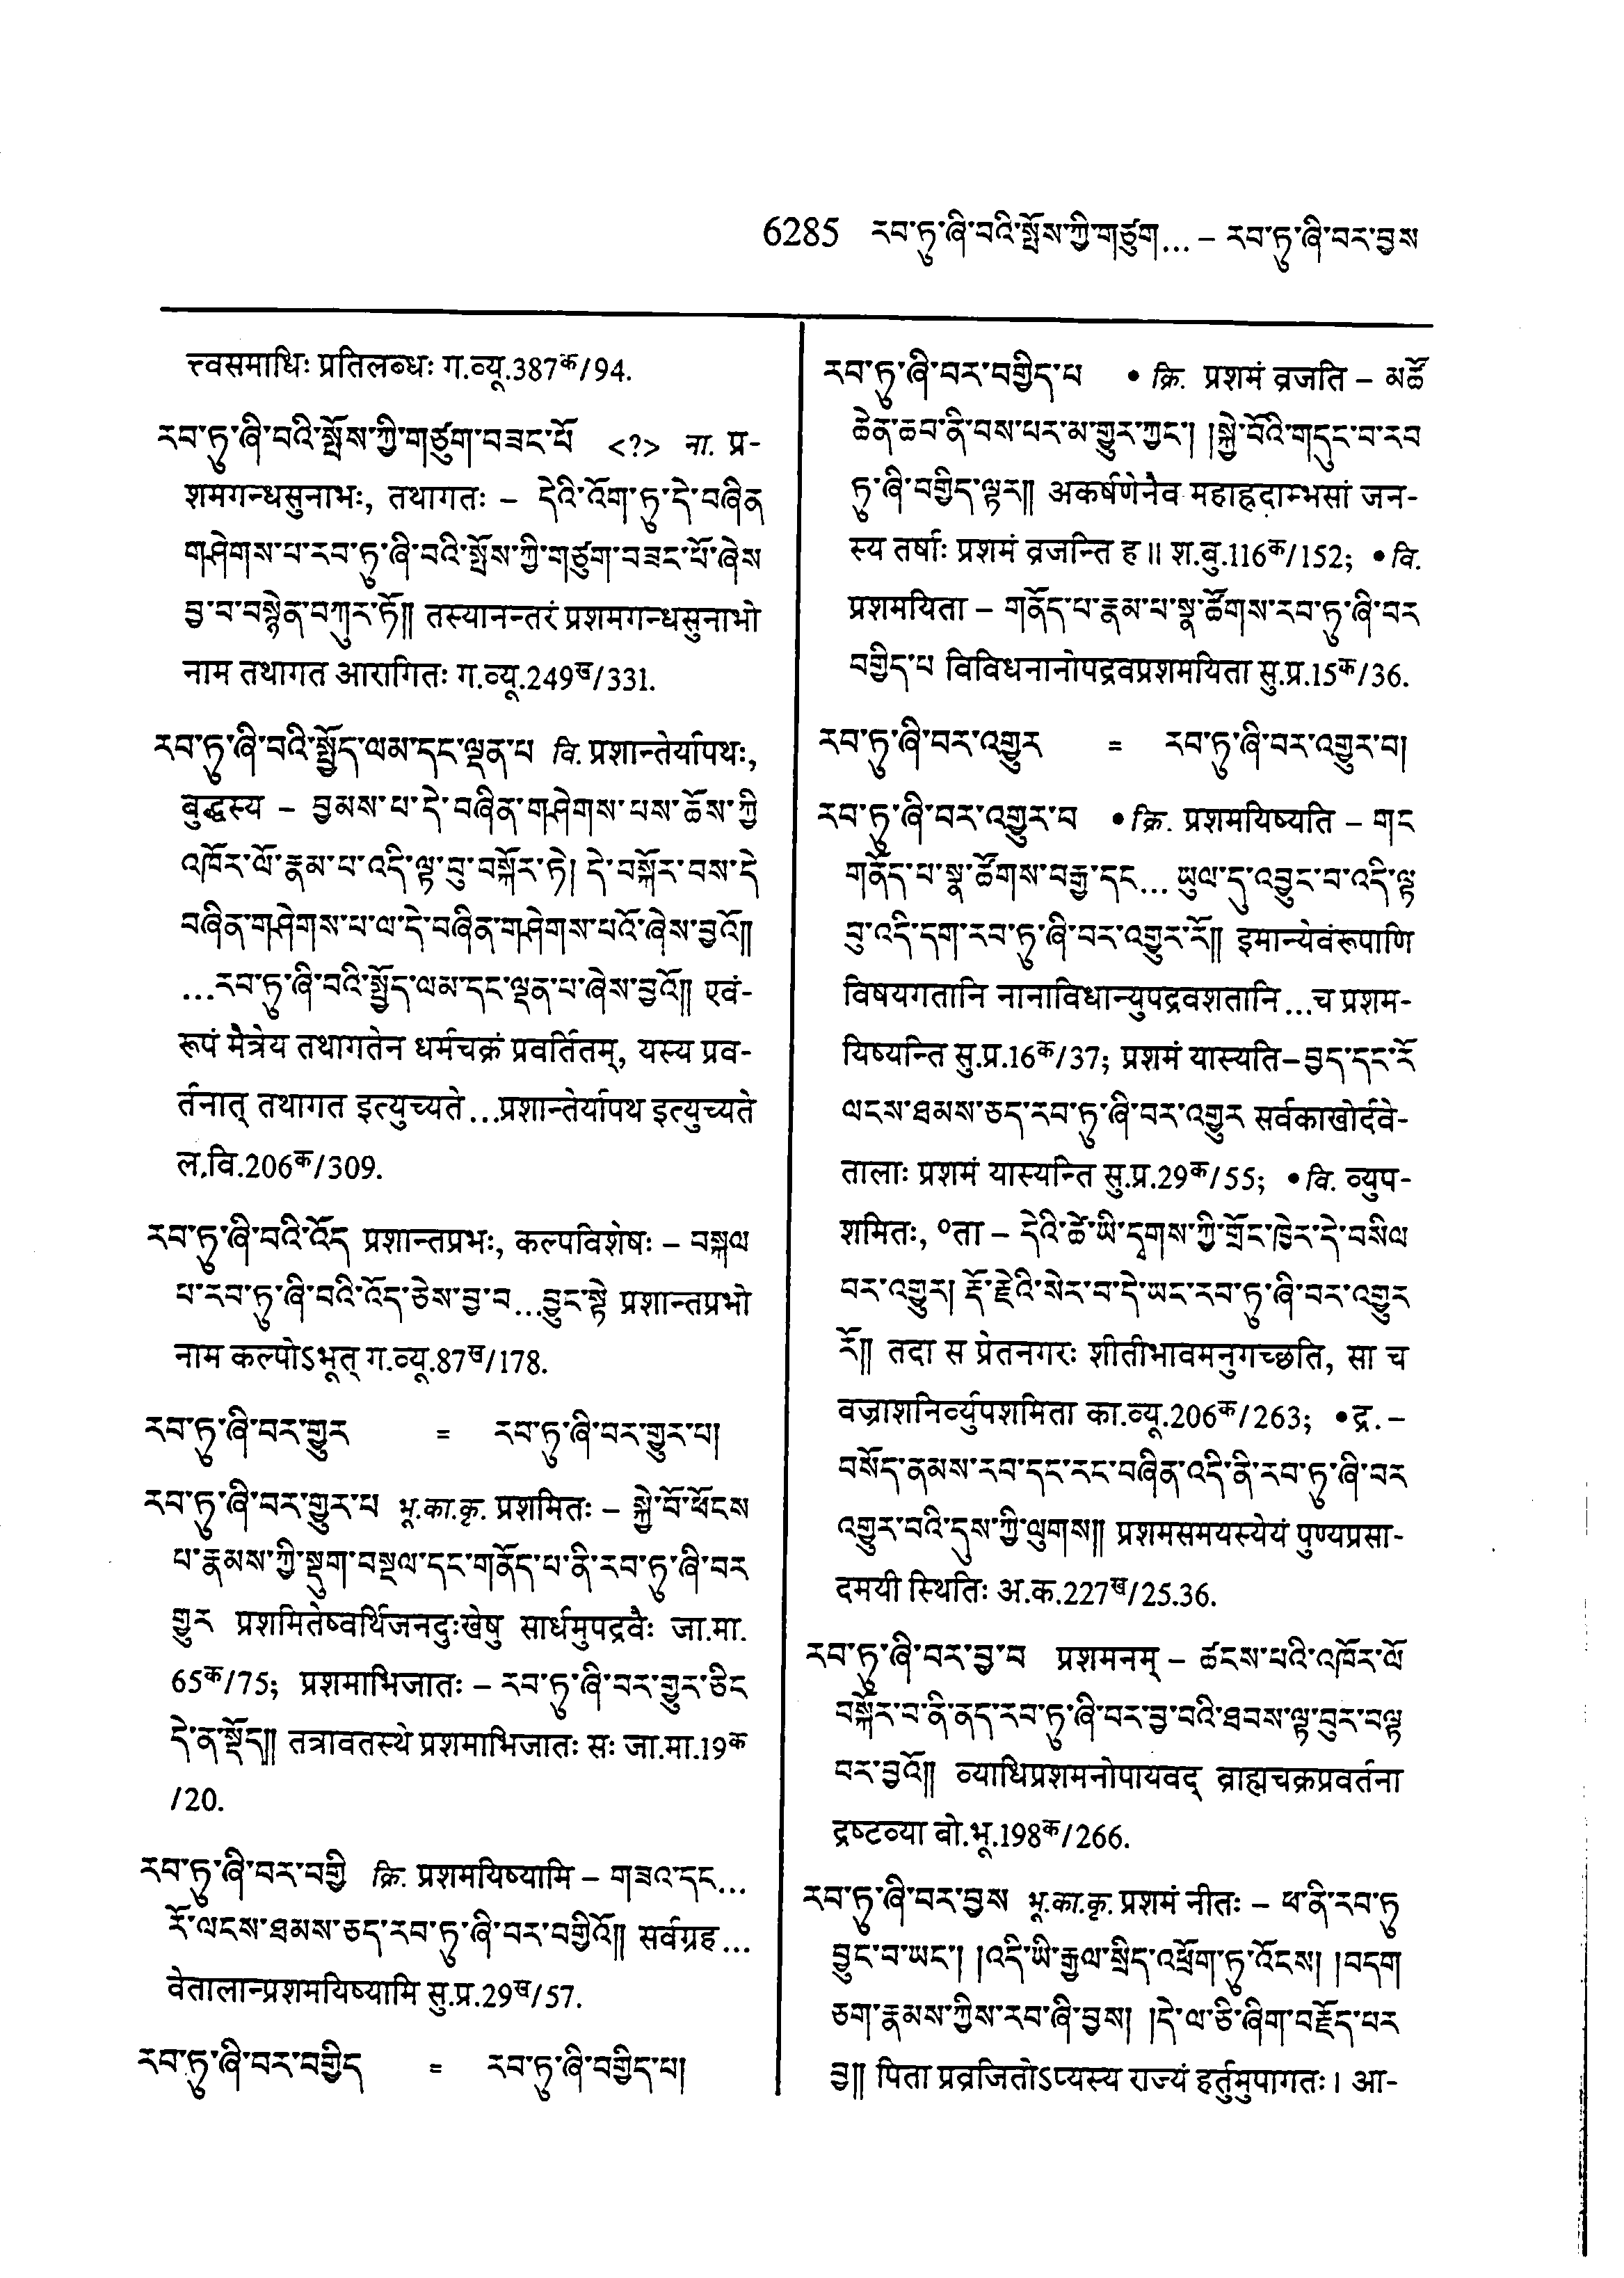 6285 རབ་ཏུ་ཞི་བའི་སྤོས་ཀྱི་གཙུག... – རབ་ཏུ་ཞི་བར་བྱས
त्त्वसमाधिः प्रतिलब्धः ग.व्यू.387क/94.
རབ་ཏུ་ཞི་བའི་སྤོས་ཀྱི་གཙུག་བཟང་པོ <?> ना. प्र-
शमगन्धसुनाभः, तथागतः – དེའི་འོག་ཏུ་དེ་བཞིན
གཤེགས་པ་རབ་ཏུ་ཞི་བའི་སྤོས་ཀྱི་གཙུག་བཟང་པོ་ཞེས
བྱ་བ་བསྙེན་བཀུར་ཏོ༎ तस्यानन्तरं प्रशमगन्धसुनाभो
नाम तथागत आरागितः ग.व्यू.249ख/331.
རབ་ཏུ་ཞི་བའི་སྤྱོད་ལམ་དང་ལྡན་པ वि. प्रशान्तेर्यापथः,
बुद्धस्य – བྱམས་པ་དེ་བཞིན་གཤེགས་པས་ཆོས་ཀྱི
འཁོར་ལོ་རྣམ་པ་འདི་ལྟ་བུ་བསྐོར་ཏེ། དེ་བསྐོར་བས་དེ
བཞིན་གཤེགས་པ་ལ་དེ་བཞིན་གཤེགས་པའོ་ཞེས་བྱའོ༎
...རབ་ཏུ་ཞི་བའི་སྤྱོད་ལམ་དང་ལྡན་པ་ཞེས་བྱའོ༎ एवं-
रूपं मैत्रेय तथागतेन धर्मचक्रं प्रवर्तितम्, यस्य प्रव-
र्तनात् तथागत इत्युच्यते...प्रशान्तेर्यापथ इत्युच्यते
ल.वि.206क/309.
རབ་ཏུ་ཞི་བའི་འོད प्रशान्तप्रभः, कल्पविशेषः – བསྐལ
པ་རབ་ཏུ་ཞི་བའི་འོད་ཅེས་བྱ་བ...བྱུང་སྟེ प्रशान्तप्रभो
नाम कल्पोऽभूत् ग.व्यू.87ख/178.
རབ་ཏུ་ཞི་བར་གྱུར = རབ་ཏུ་ཞི་བར་གྱུར་པ།
རབ་ཏུ་ཞི་བར་གྱུར་པ भू.का.कृ. प्रशमितः – སྐྱེ་བོ་ཕོངས
པ་རྣམས་ཀྱི་སྡུག་བསྔལ་དང་གནོད་པ་ནི་རབ་ཏུ་ཞི་བར
གྱུར प्रशमितेष्वर्थिजनदुःखेषु सार्धमुपद्रवैः जा.मा.
65क/75; प्रशमाभिजातः – རབ་ཏུ་ཞི་བར་གྱུར་ཅིང
དེ་ན་སྡོད༎ तत्रावतस्थे प्रशमाभिजातः सः जा.मा.19क
/20.
རབ་ཏུ་ཞི་བར་བགྱི क्रि. प्रशमयिष्यामि – གཟའ་དང...
རོ་ལངས་ཐམས་ཅད་རབ་ཏུ་ཞི་བར་བགྱིའོ༎ सर्वग्रह...
वेतालान्प्रशमयिष्यामि सु.प्र.29ख/57.
རབ་ཏུ་ཞི་བར་བགྱིད = རབ་ཏུ་ཞི་བགྱིད་པ།
རབ་ཏུ་ཞི་བར་བགྱིད་པ • क्रि. प्रशमं व्रजति – མཚོ
ཆེན་ཆབ་ནི་བས་པར་མ་གྱུར་ཀྱང་། །སྐྱེ་བོའི་གདུང་བ་རབ
ཏུ་ཞི་བགྱིད་ལྟར༎ अकर्षणेनैव महाह्रदाम्भसां जन-
स्य तर्षाः प्रशमं व्रजन्ति ह॥ श.बु.116क/152; • वि.
प्रशमयिता – གནོད་པ་རྣམ་པ་སྣ་ཚོགས་རབ་ཏུ་ཞི་བར
བགྱིད་པ विविधनानोपद्रवप्रशमयिता सु.प्र.15क/36.
རབ་ཏུ་ཞི་བར་འགྱུར = རབ་ཏུ་ཞི་བར་འགྱུར་བ།
རབ་ཏུ་ཞི་བར་འགྱུར་བ • क्रि. प्रशमयिष्यति – གང
གནོད་པ་སྣ་ཚོགས་བརྒྱ་དང... ཡུལ་དུ་འབྱུང་བ་འདི་ལྟ
བུ་འདི་དག་རབ་ཏུ་ཞི་བར་འགྱུར་རོ༎ इमान्येवंरूपाणि
विषयगतानि नानाविधान्युपद्रवशतानि...च प्रशम-
यिष्यन्ति सु.प्र.16क/37; प्रशमं यास्यति – བྱད་དང་རོ
ལངས་ཐམས་ཅད་རབ་ཏུ་ཞི་བར་འགྱུར सर्वकाखोर्दवे-
तालाः प्रशमं यास्यन्ति सु.प्र.29क/55; • वि. व्युप-
शमितः, ०ता – དེའི་ཚེ་ཡི་དྭགས་ཀྱི་གྲོང་ཁྱེར་དེ་བསིལ
བར་འགྱུར། རྡོ་རྗེའི་སེར་བ་དེ་ཡང་རབ་ཏུ་ཞི་བར་འགྱུར
རོ༎ तदा स प्रेतनगरः शीतीभावमनुगच्छति, सा च
वज्राशनिर्व्युपशमिता का.व्यू.206क/263; • द्र. –
བསོད་ནམས་རབ་དང་རང་བཞིན་འདི་ནི་རབ་ཏུ་ཞི་བར
འགྱུར་བའི་དུས་ཀྱི་ལུགས༎ प्रशमसमयस्येयं पुण्यप्रसा-
दमयी स्थितिः अ.क.227ख/25.36.
རབ་ཏུ་ཞི་བར་བྱ་བ प्रशमनम् – ཚངས་པའི་འཁོར་ལོ
བསྐོར་བ་ནི་ནད་རབ་ཏུ་ཞི་བར་བྱ་བའི་ཐབས་ལྟ་བུར་བལྟ
བར་བྱའོ༎ व्याधिप्रशमनोपायवद् ब्राह्मचक्रप्रवर्तना
द्रष्टव्या बो.भू.198क/266.
རབ་ཏུ་ཞི་བར་བྱས भू.का.कृ. प्रशमं नीतः – ཕ་ནི་རབ་ཏུ
བྱུང་བ་ཡང་། །འདི་ཡི་རྒྱལ་སྲིད་འཕྲོག་ཏུ་འོངས། །བདག
ཅག་རྣམས་ཀྱིས་རབ་ཞི་བྱས། །དེ་ལ་ཅི་ཞིག་བརྗོད་པར
བྱ༎ पिता प्रव्रजितोऽप्यस्य राज्यं हर्तुमुपागतः। आ-